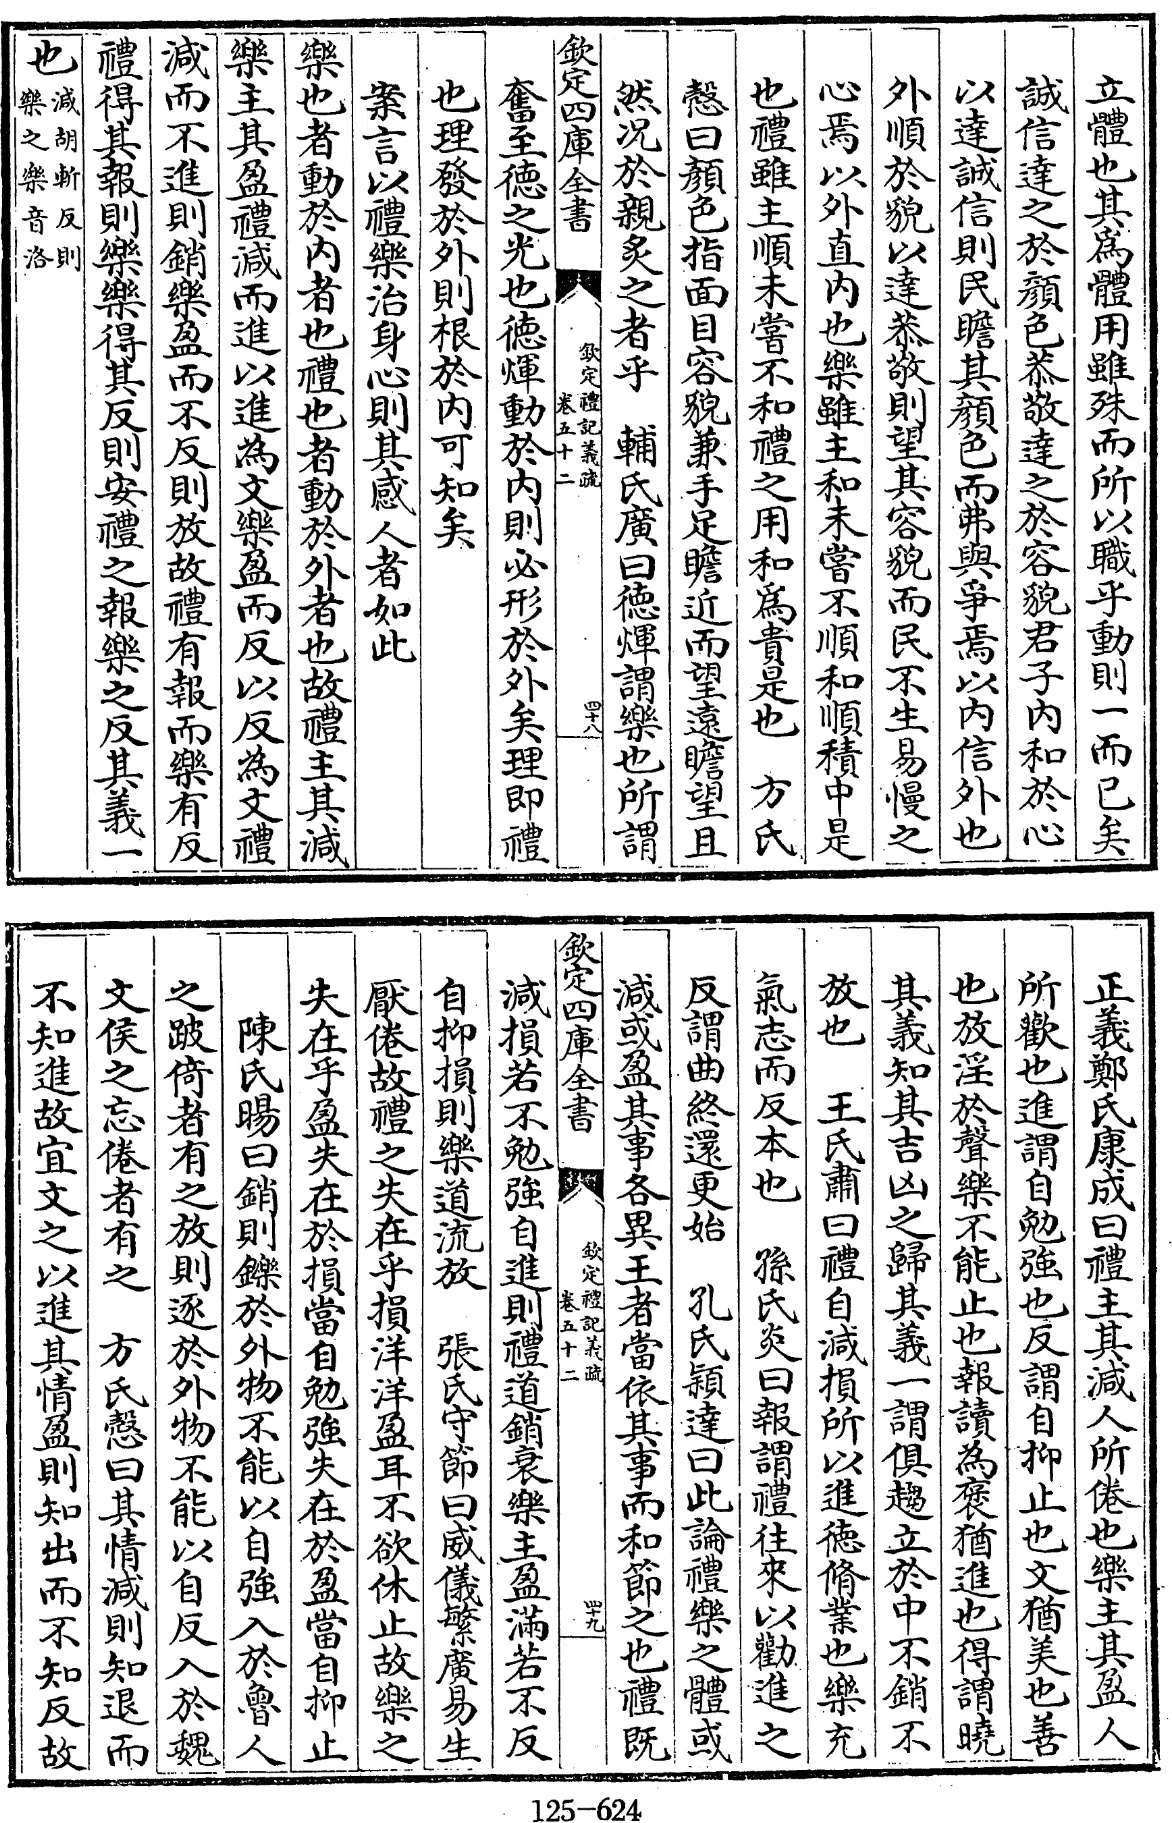 立體也其爲體用雖殊而所以職乎動則一而已矣
誠信達之於顔色恭敬達之於容貌君子内和於心
以達誠信則民瞻其顔色而弗與爭焉以内信外也
外順於貌以達恭敬則望其容貌而民不生易慢之
心焉以外直内也樂雖主和未嘗不順和順積中是
也禮雖主順未嘗不和禮之用和爲貴是也　方氏
慤曰顔色指面目容貌兼手足瞻近而望遠瞻望且
然况於親炙之者乎　輔氏廣曰德輝謂樂也所謂
欽定四庫全書
欽定禮記義疏
卷五十二
四十八
奮至德之光也德輝動於内則必形於外矣理即禮
也理發於外則根於内可知矣
案言以禮樂治身心則其感人者如此
樂也者動於内者也禮也者動於外者也故禮主其減
樂主其盈禮減而進以進為文樂盈而反以反為文禮
減而不進則銷樂盈而不反則放故禮有報而樂有反
禮得其報則樂樂得其反則安禮之報樂之反其義一
也
減胡斬反則
樂之樂音洛
正義鄭氏康成曰禮主其減人所倦也樂主其盈人
所歡也進謂自勉強也反謂自抑止也文猶美也善
也放淫於聲樂不能止也報讀為褒猶進也得謂曉
其義知其吉凶之歸其義一謂俱趨立於中不銷不
放也　王氏肅曰禮自減損所以進德脩業也樂充
氣志而反本也　孫氏炎曰報謂禮往來以勸進之
反謂曲終還更始　孔氏穎達曰此論禮樂之體或
減或盈其事各異王者當依其事而和節之也禮既
欽定四庫全書
欽定禮記義疏
卷五十二
四十九
減損若不勉強自進則禮道銷衰樂主盈滿若不反
自抑損則樂道流放　張氏守節曰威儀繁廣易生
厭倦故禮之失在乎損洋洋盈耳不欲休止故樂之
失在乎盈失在於損當自勉強失在於盈當自抑止
陳氏暘曰銷則鑠於外物不能以自強入於魯人
之跛倚者有之放則逐於外物不能以自反入於魏
文侯之忘倦者有之　方氏慤曰其情減則知退而
不知進故宜文之以進其情盈則知出而不知反故
125-624